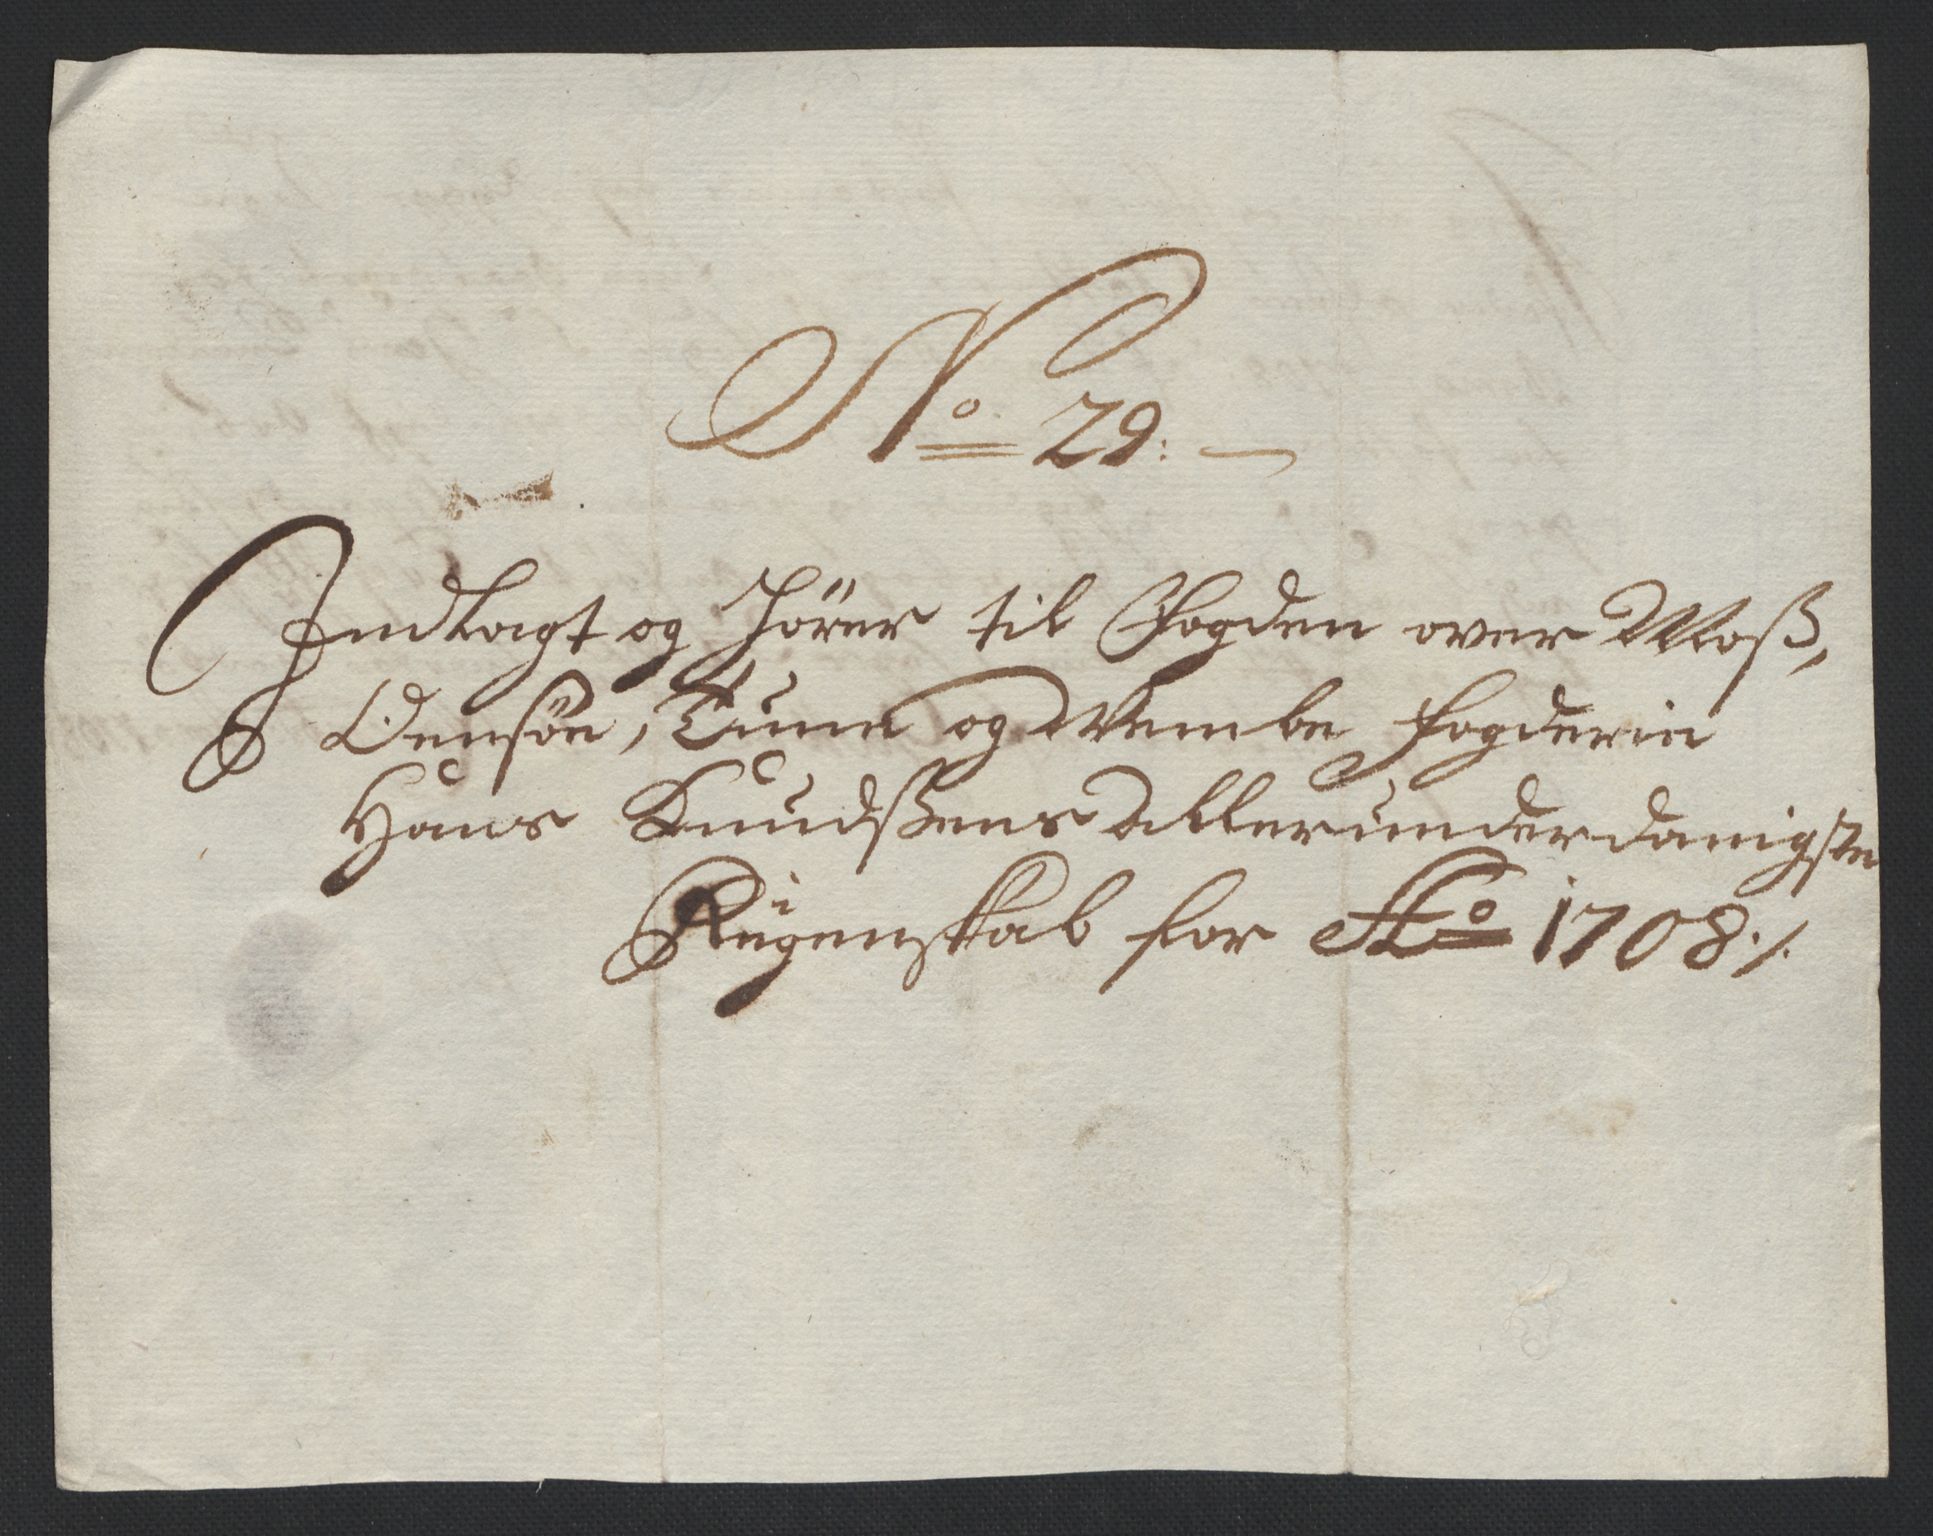 No 29:
Indlagt og hörer til Fogden over Moß,
Oensöe, Tune og Wembe Fogderie
Hans Knudßens Allerunderdanigste
Regenskab for Ao 1708 ./.